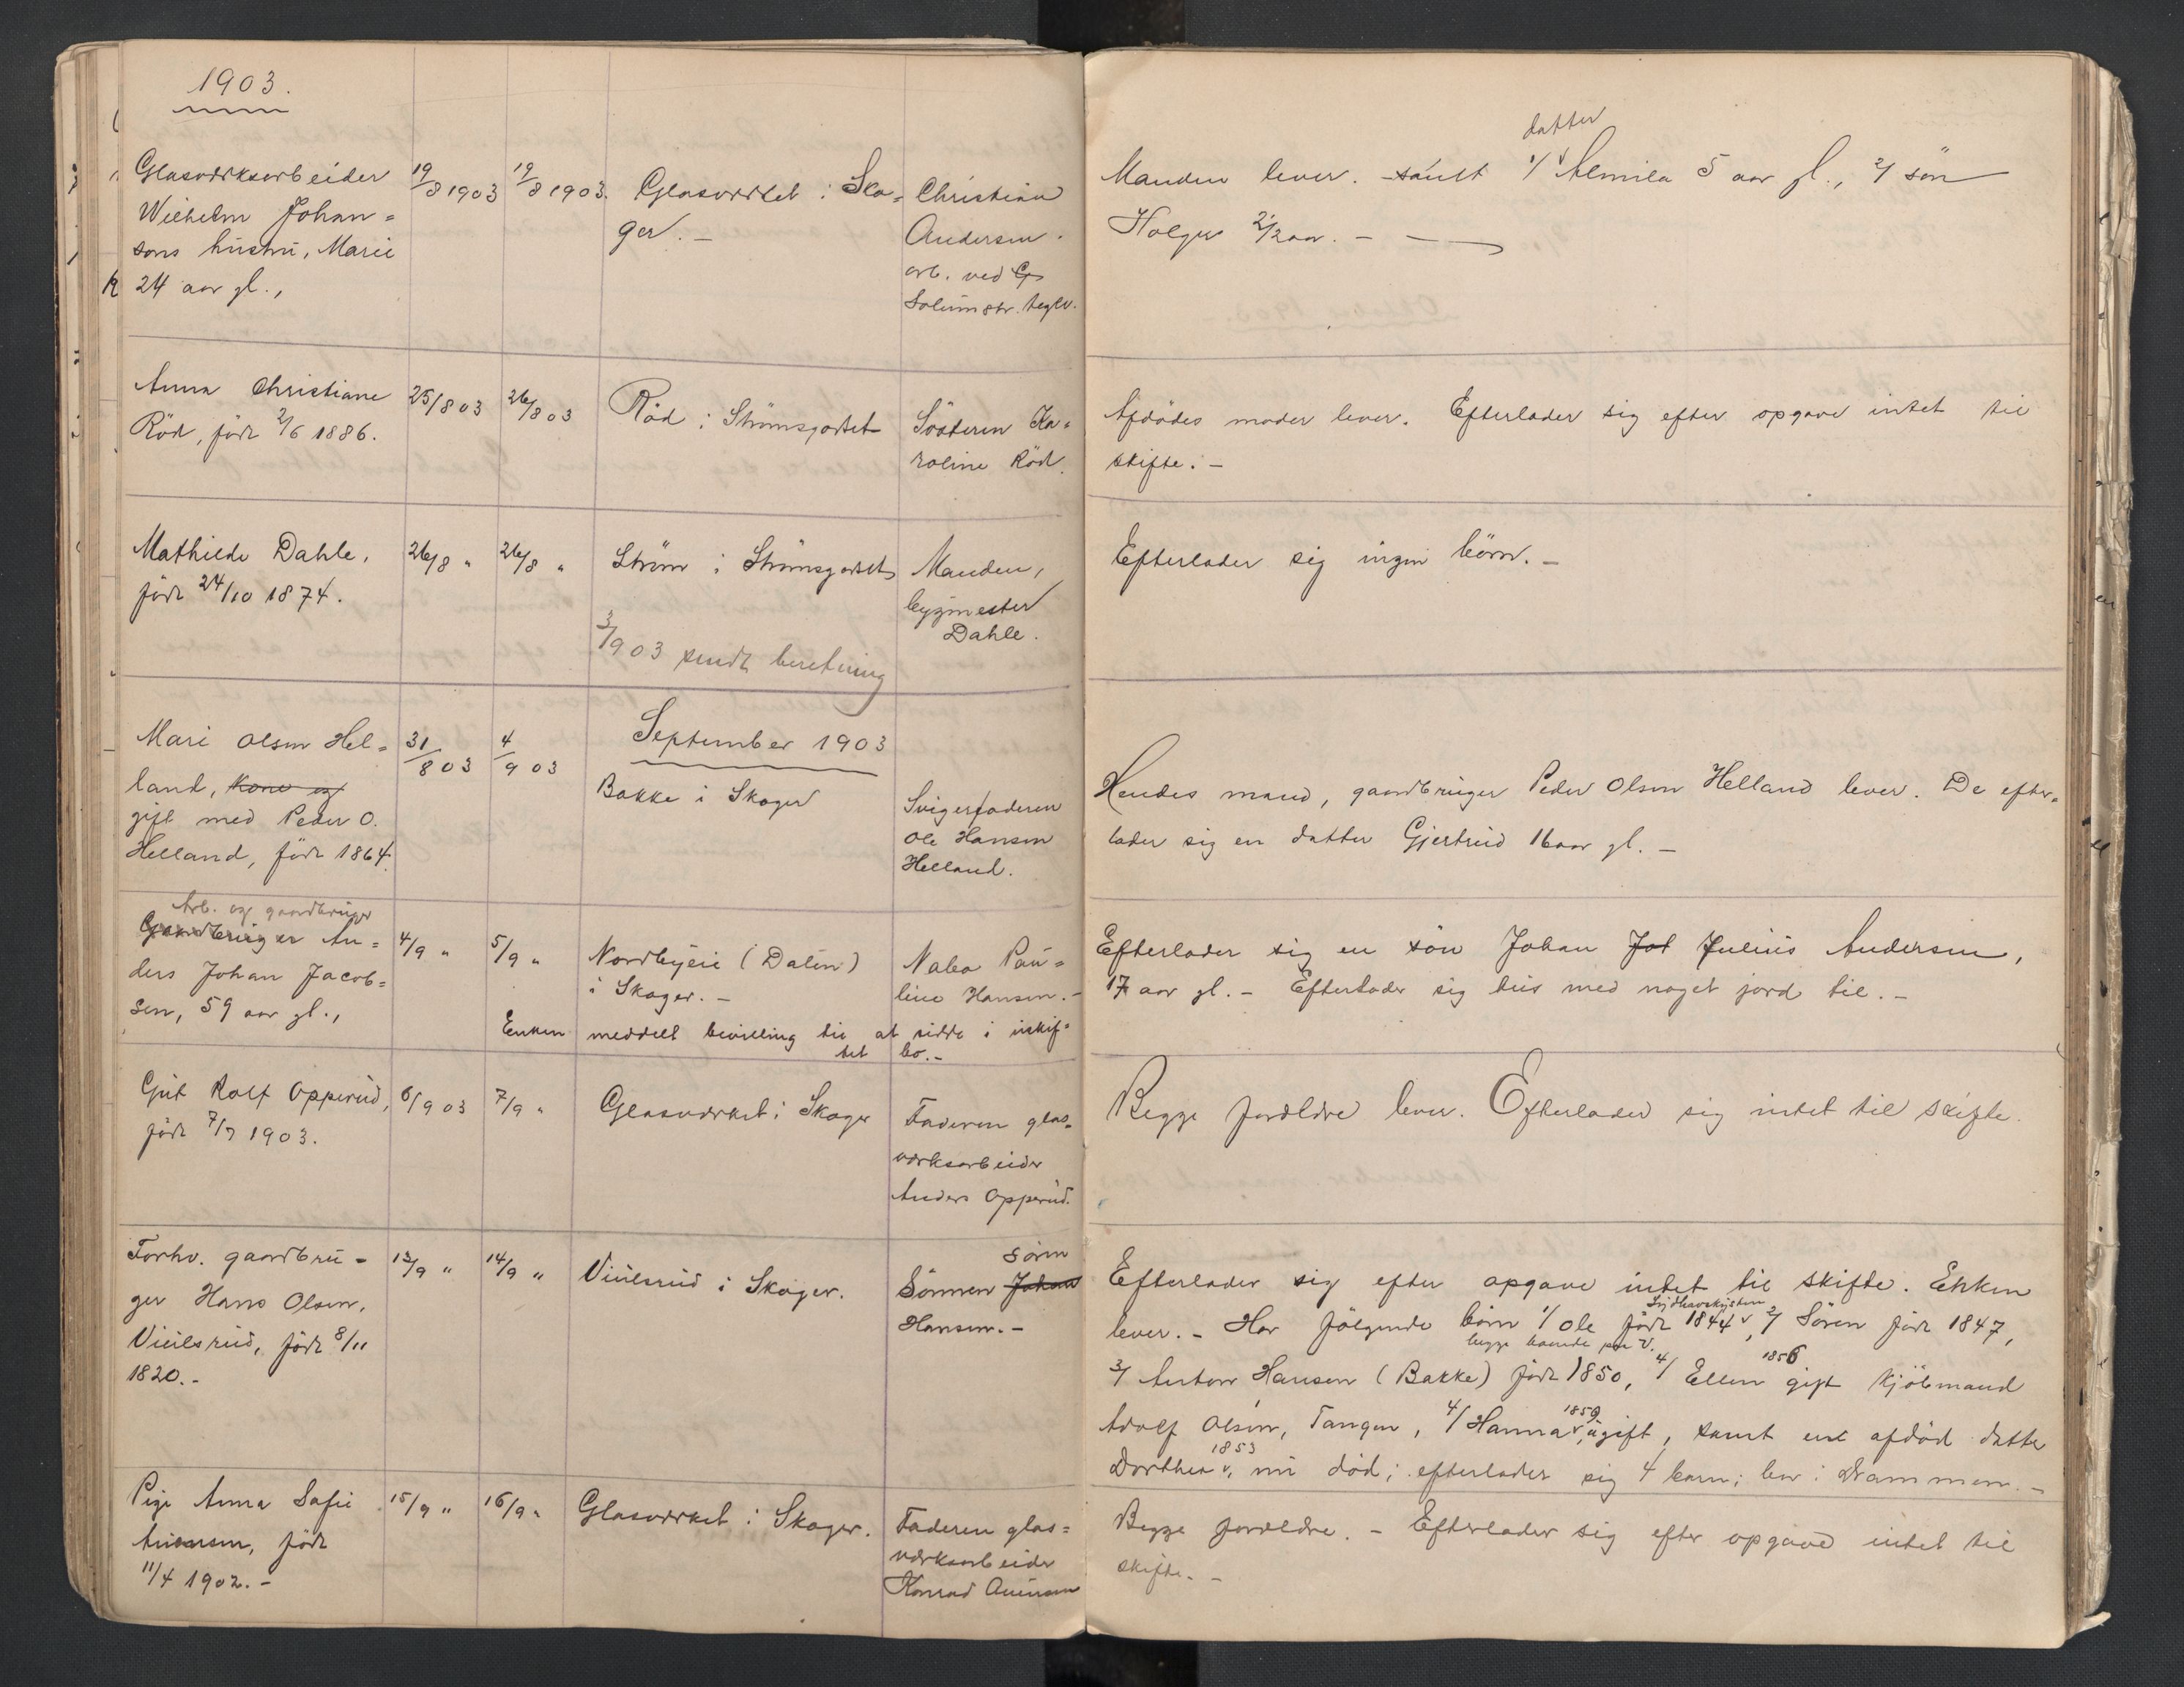 1903.
Glasværksarbeider
Wilhelm Johan=
sens hustru, Marie
24 aar gl.,
19/8 1903
19/8 1903.
Glasværket i Sko=
ger. –
Christian
Andersen.
arb. ved
Solumstr. teglv.
datter
Manden lever. – samt 1/ Almila 5 aar gl., 2/ søn
Holger 2 1/2 aar. –
Anna Christiane
Röd, født 2/6 1886.
25/8 03
26/8 03
Röd i Strømsgodset
Søsteren Ka=
roline Röd.
Afdødes moder lever. Efterlader sig efter opgave intet til
skifte. –
Mathilde Dahle,
født 24/10 1874.
26/8 "
26/8 "
Strøm i Strømsgodset
Manden,
bygmester
Dahle.
Efterlader sig ingen børn. –
3/9 03 sendt beretning
September 1903
Mari Olsen Hel=
land, kone og
gift med Peder O.
Helland, født 1864.
31/8 03
4/9 03
Bakke i Skoger
Svigerfaderen
Ole Hansen
Helland.
Hendes mand, gaardbruger Peder Olsen Helland lever. De efter=
lader sig en datter Gjertrud 16 aar gl. –
Arb. og gaardbruger
Gaardbruger An=
ders Johan Jacob=
sen, 59 aar gl.,
4/9 "
5/9 "
Nordbyeie (Dalen)
i Skoger. –
Nabo Pau=
line Hansen. –
Efterlader sig en søn Johan Jol Julius Andersen,
17 aar gl. – Efterlader sig hus med noget jord til. –
Enken meddelt bevilling til at sidde i uskif=
tet bo. –
Gut Rolf Opperud,
født 7/7 1903.
6/9 03
7/9 "
Glasværket i Skoger
Faderen glas=
værksarbeider
Anders Opperud.
Begge forældre lever. Efterlader sig intet til skifte.
Forhv. gaardbru=
ger Hans Olsen,
Viulsrud, født 8/11
1820. –
13/9 "
14/9 "
Viulsrud i Skoger.
Søren
Sønnen Johan
Hansen. –
Efterlader sig efter opgave intet til skifte. Enken
lever. – Har følgende børn 1/ Ole født 1844, 2/ Søren født 1847,
begge boende paa V.
3/ Anton Hansen (Bakke) født 1850, 4/ Ellen 1856 gift kjøbmand
Adolf Olsen, Tangen, 4/ Hanna 1859, ugift, samt en afdød datter
Dorthea 1853, nu død; efterlader sig 4 barn; bor i Drammen. –
Pige Anna Sofie
født
11/4 1902. –
15/9 "
16/9 "
Glasværket i Skoger.
Faderen glas=
værksarbeider
Konrad
Begge forældre. – Efterlader sig efter opgave intet til
skifte. –